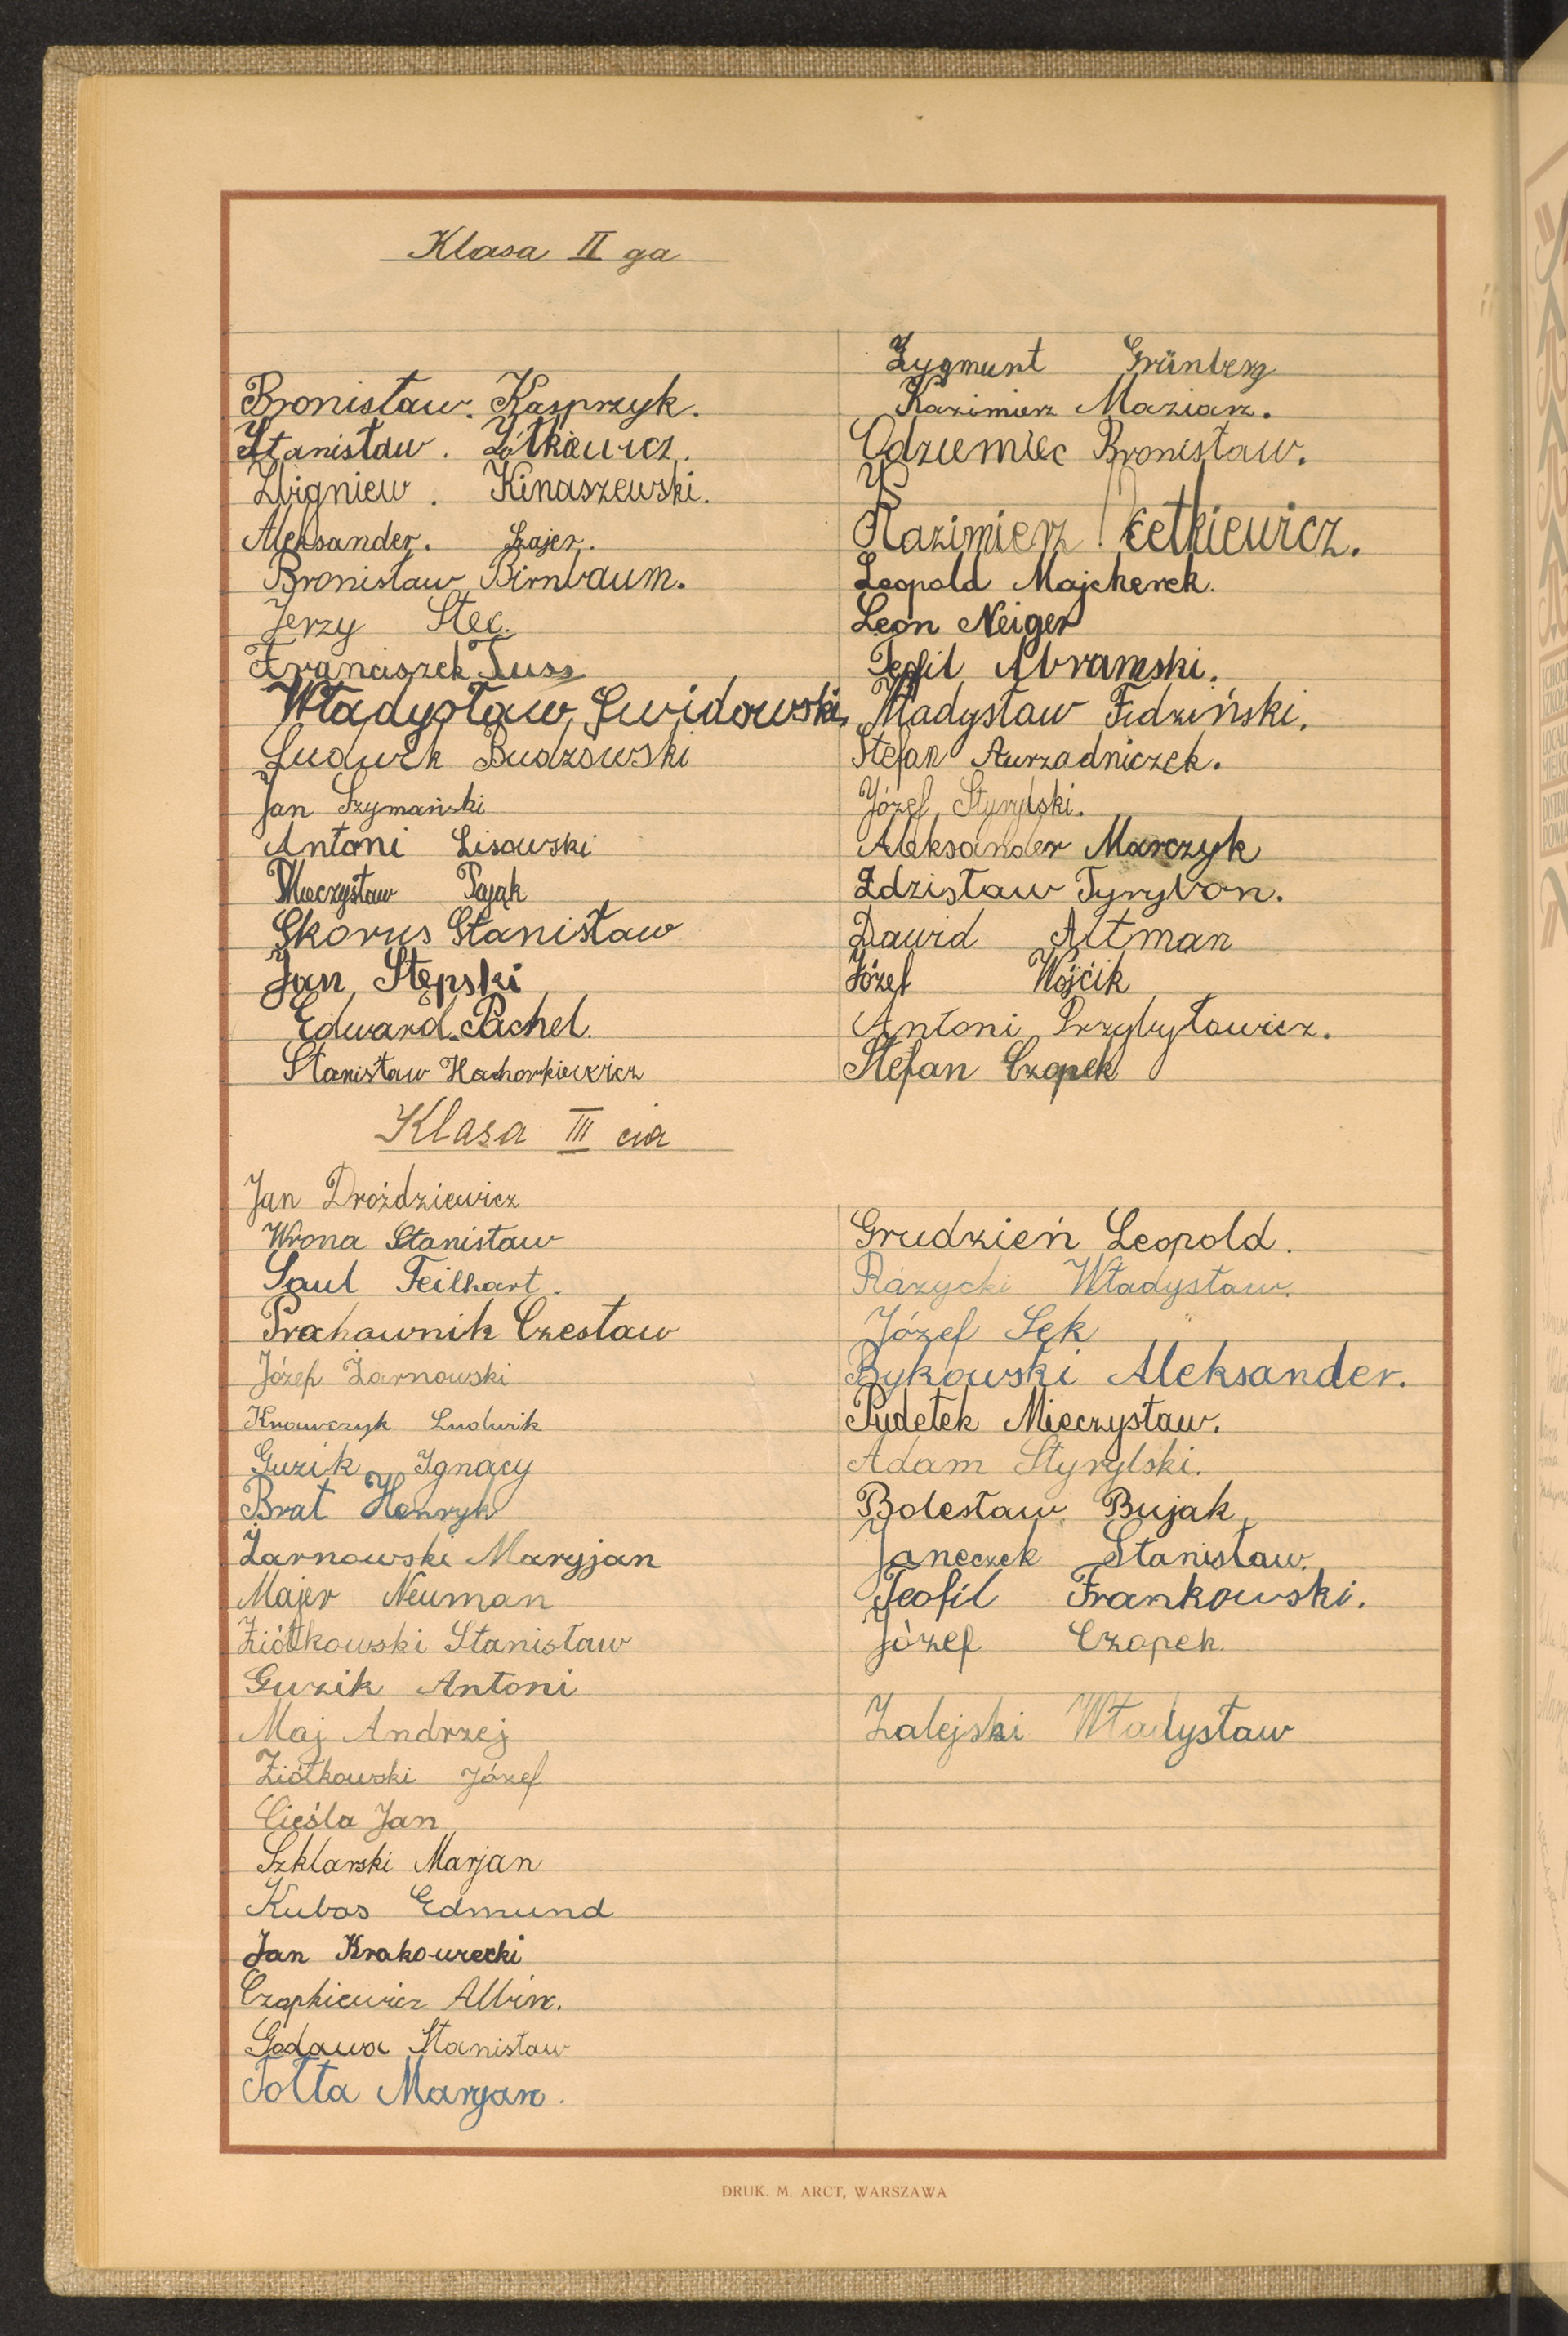 Klasa II ga
Bronisław. Kasprzyk.
Stanisław. Żółkiewicz.
Zbigniew. Kinaszewski.
Aleksander. Szajer.
Bronisław Birnbaum.
Jerzy Stec.
Franciszek Tuss
Władysław Świdowski
Ludwik Budzowski
Jan Szymański
Antoni Lisowski
Mieczysław Pająk
Skorus Stanisław
Jan Stępski
Edward Pachel.
Stanisław
Zygmunt Grünberg
Kazimierz Maziarz.
Odziemiec Bronisław.
Kazimierz Pietkiewicz.
Leopold Majcherek.
Leon Neiger
Teofil Abramski.
Władysław Fidziński.
Stefan Aurzadniczek.
Józef Styrylski.
Aleksander Marczyk
Zdzisław Tyrybon.
Dawid Altman
Józef Wójcik
Antoni Przybyłowicz.
Stefan Czopek
Klasa III cia
Jan Droździewicz
Wrona Stanisław
Saul Feilhart.
Prochownik Czesław
Józef Żarnowski
Krawczyk Ludwik
Guzik Ignacy
Brat Henryk
Żarnowski Maryjan
Majer Neuman
Ziółkowski Stanisław
Guzik Antoni
Maj Andrzej
Ziółkowski Józef
Cieśla Jan
Szklarski Marjan
Kubas Edmund
Jan Krakowiecki
Czapkiewicz Albin.
Godawa Stanisław
Tołta Maryan.
Grudzień Leopold.
Różycki Władysław.
Józef Sęk
Bykowski Aleksander.
Pudełek Mieczysław.
Adam Styrylski.
Bolesław Bujak
Janeczek Stanisław.
Teofil Frankowski.
Józef Czopek.
Zalejski Władysław
DRUK. M. ARCT, WARSZAWA